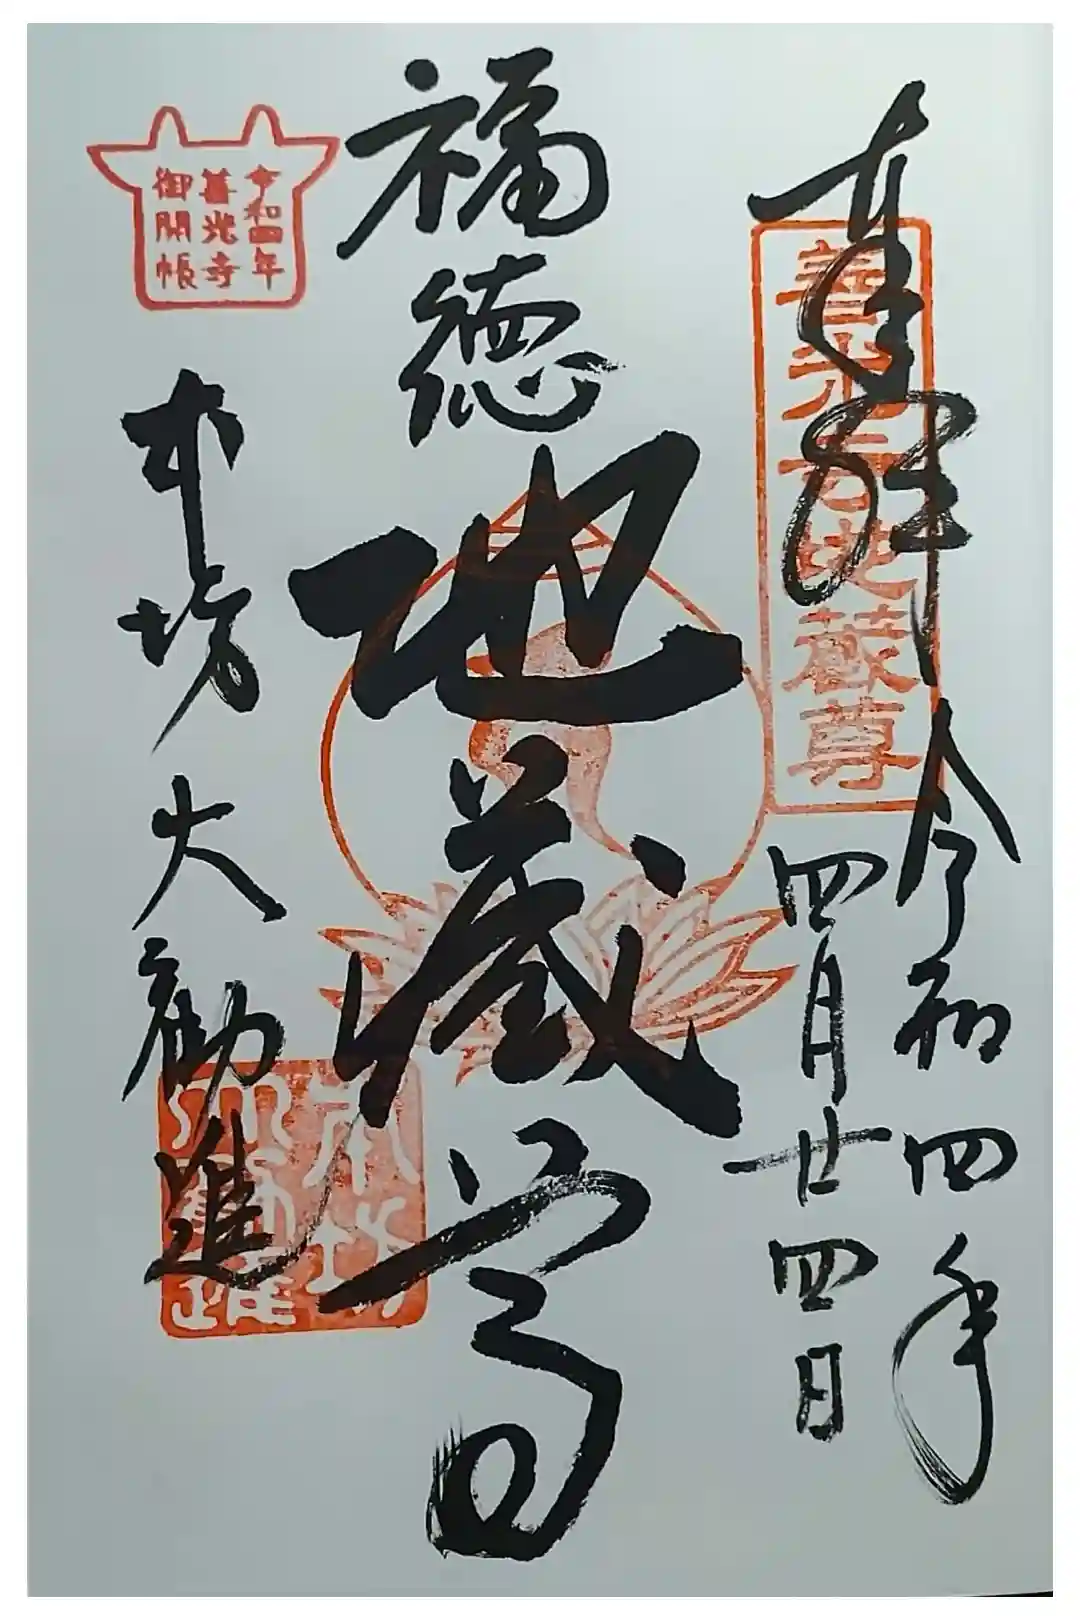 奉拝
令和四年
四月廿四日
善光
蔵尊
福徳
地蔵尊
令和四年
善光寺
御開帳
本坊大勧進
本坊
大勧進